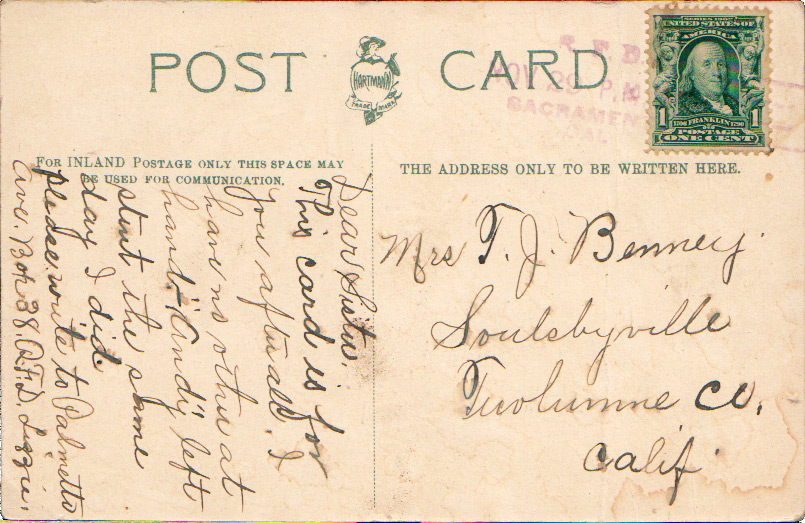 POST CARD
HARTMANN
TRADE MARK
R.F.D.
NOV 29 P.M.
SACRAMEN
CAL
SERIES 1902
UNITED STATES OF
AMERICA
1 1
1706 FRANKLIN 1790
POSTAGE
ONE CENT
FOR INLAND POSTAGE ONLY THIS SPACE MAY
BE USED FOR COMMUNICATION.
THE ADDRESS ONLY TO BE WRITTEN HERE.
Dear Sister.
This card is for
you after all. I
have no other at
hand. "Andy" left
stint the same
day I did.
please write to Palmetto
Ave. Box 38. R.F.D. Lizzie.
Mrs T. J. Benney.
Soulsbyville
Tuolumne Co.
Calif.